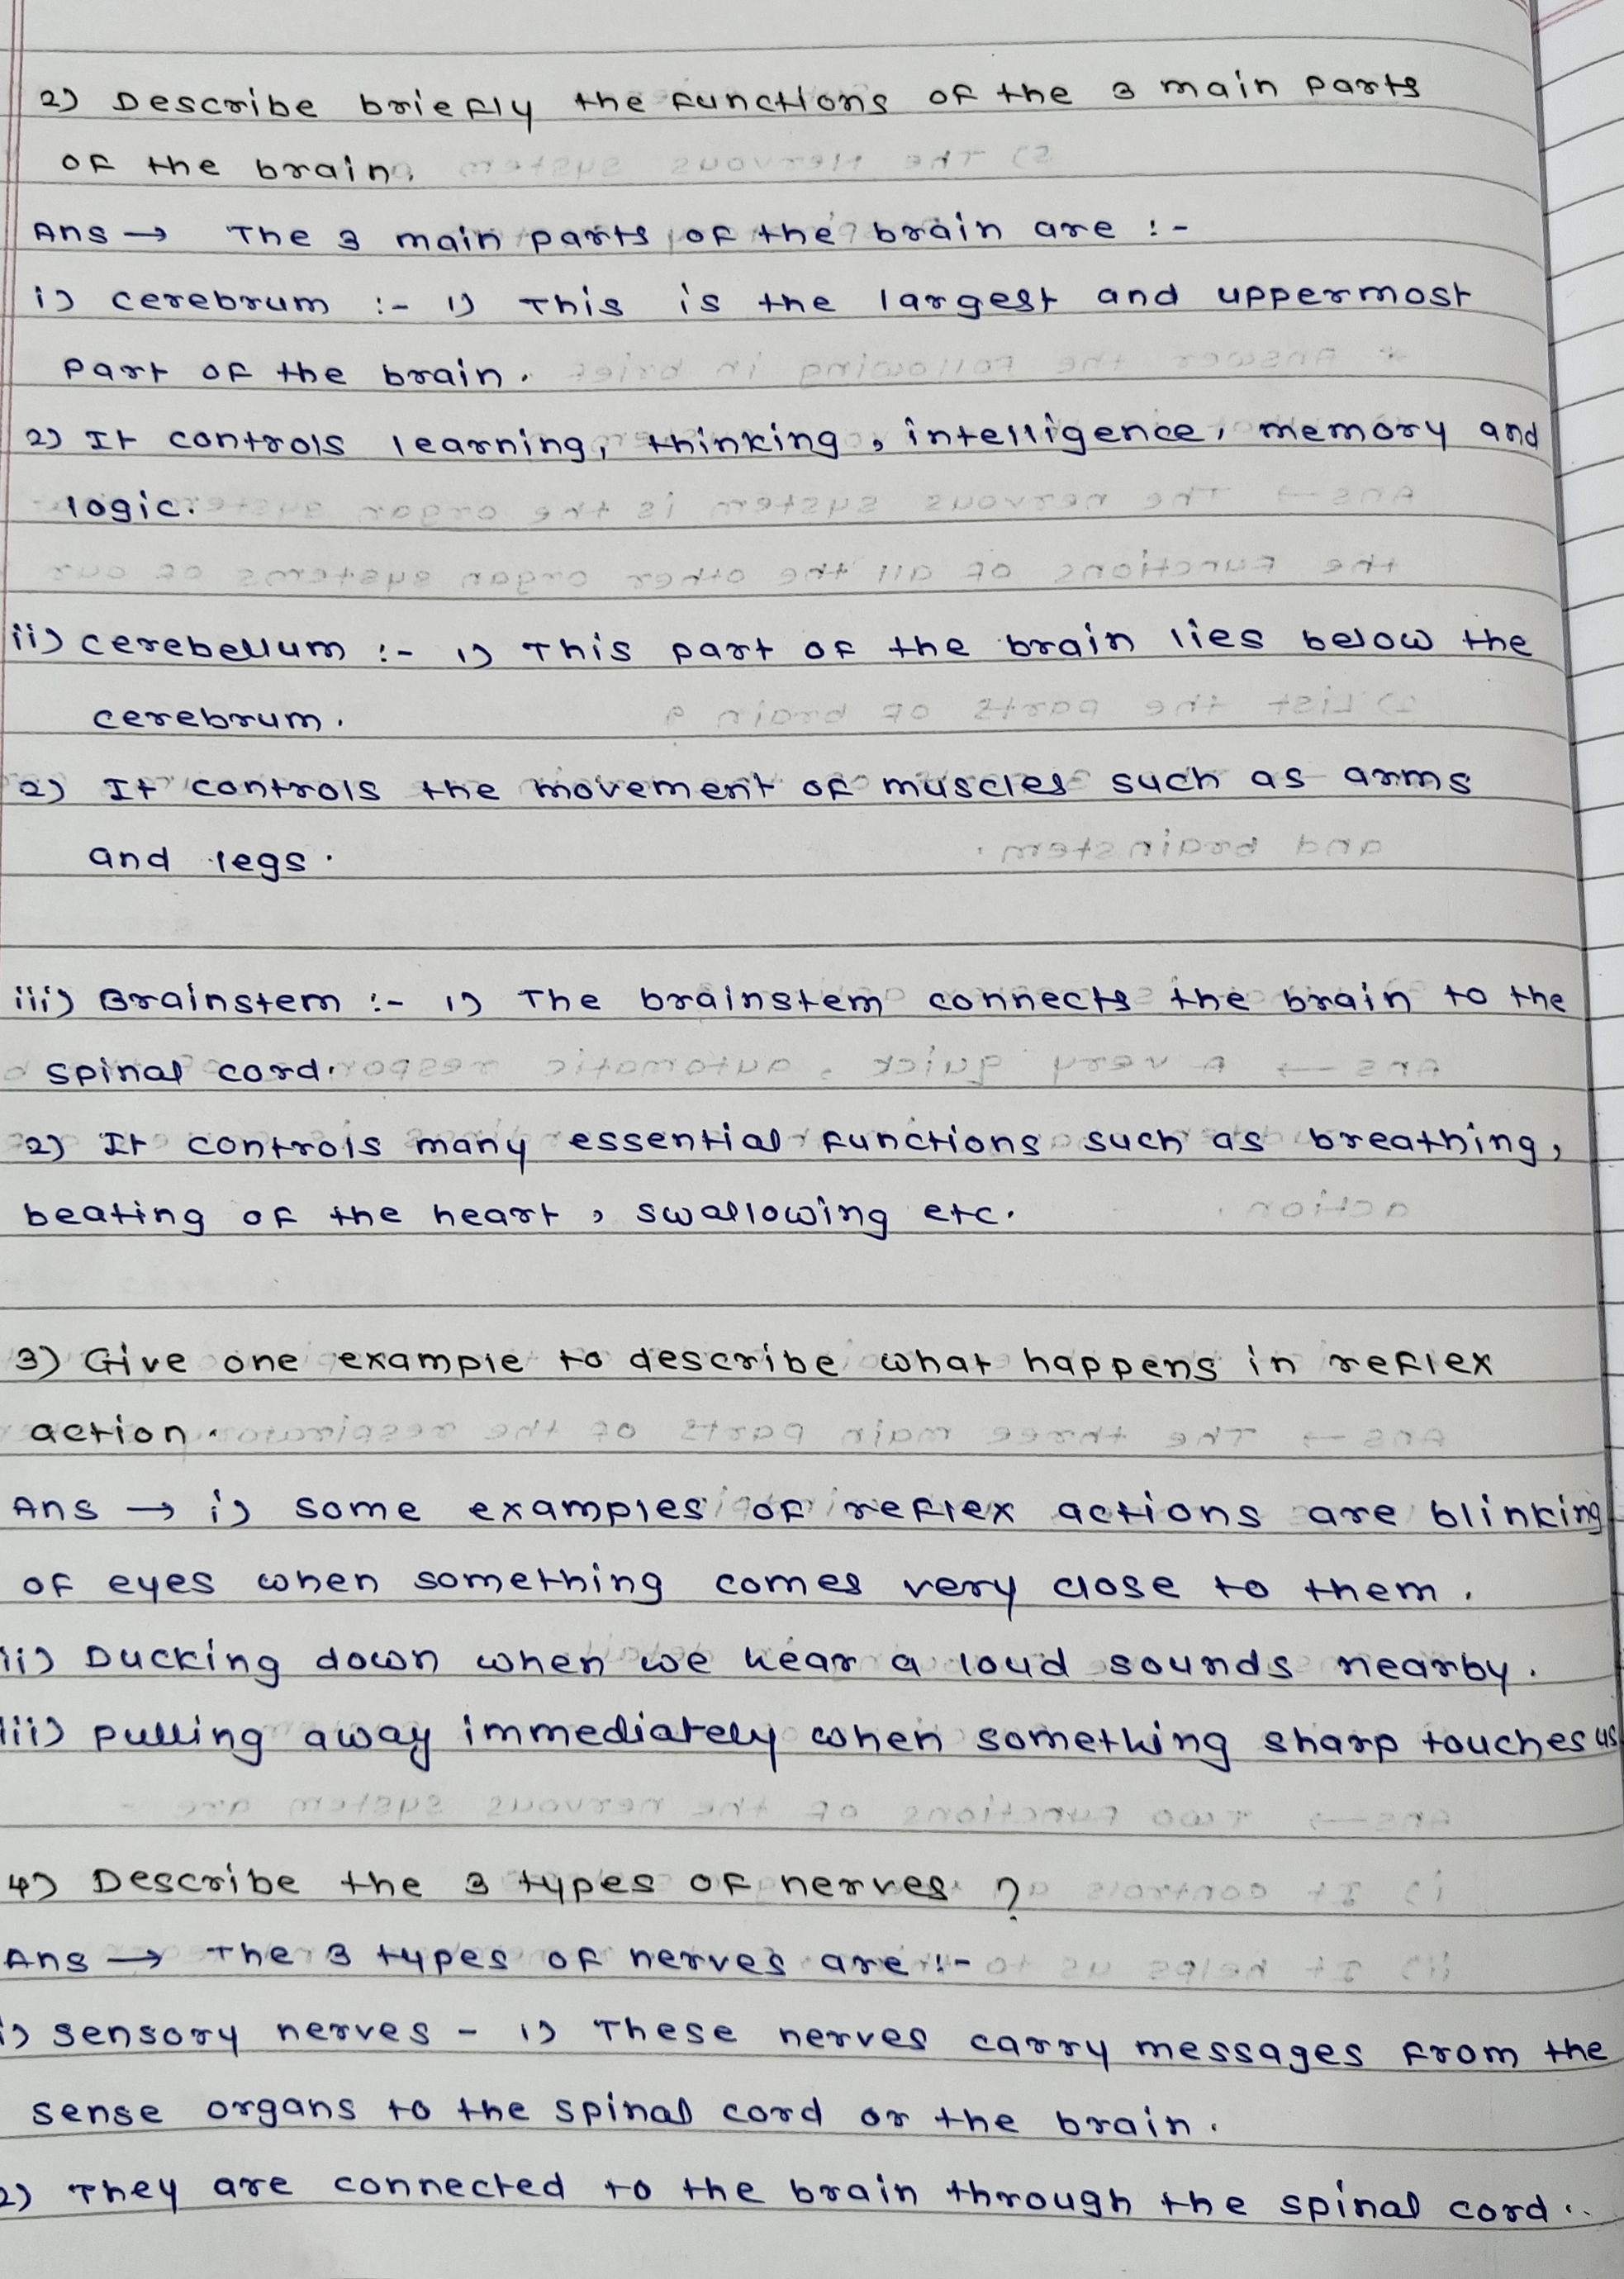 2) Describe briefly the functions of the 3 main parts
of the brain.
Ans → The 3 main parts of the brain are :-
i) cerebrum :- 1) This is the largest and uppermost
part of the brain.
2) It controls learning, thinking, intelligence, memory and
logic.
ii) cerebellum :- 1) This part of the brain lies below the
cerebrum.
2) It controls the movement of muscles such as arms
and legs.
iii) Brainstem :- 1) The brainstem connects the brain to the
spinal cord.
2) It controls many essential functions such as breathing,
beating of the heart, swallowing etc.
3) Give one example to describe what happens in reflex
action.
Ans → i) some examples of reflex actions are blinking
of eyes when something comes very close to them.
ii) Ducking down when we hear a loud sounds nearby.
iii) pulling away immediately when something sharp touches us
4) Describe the 3 types of nerves ?
Ans → The 3 types of nerves are :-
i) sensory nerves - 1) These nerves carry messages from the
sense organs to the spinal cord or the brain.
2) They are connected to the brain through the spinal cord.